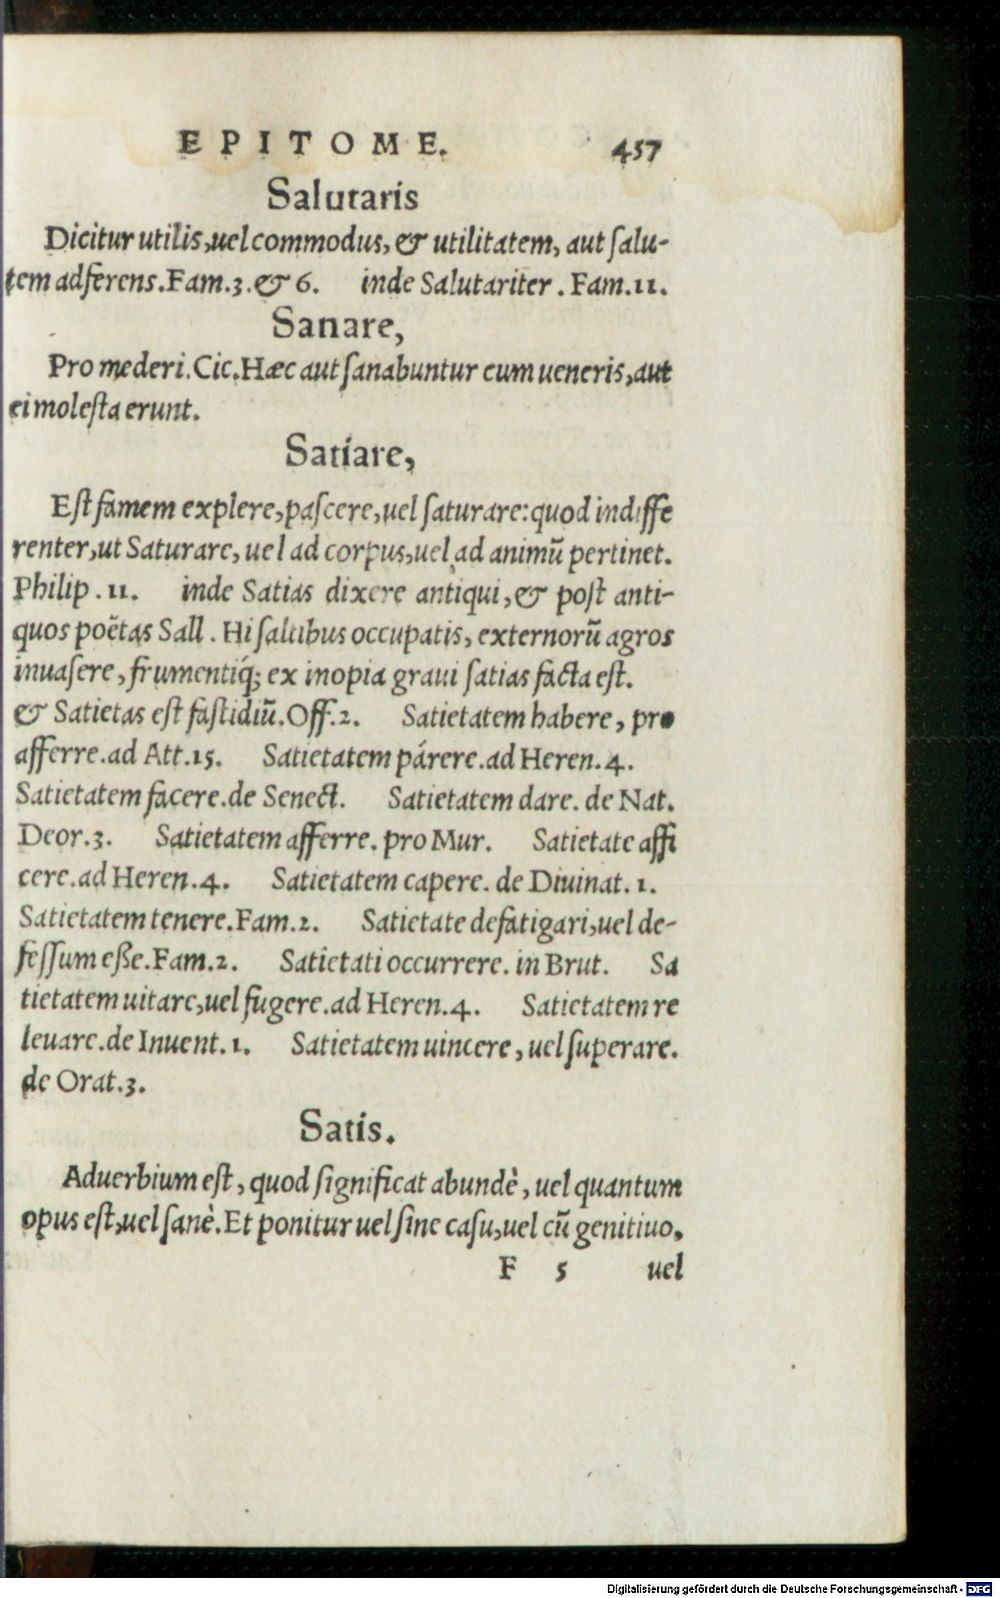 EPITOME. 457
Salutaris
Dicitur utilis, uel commodus, & utilitatem, aut ſalu-
tem adferens. Fam. 3. & 6. inde Salutariter. Fam. 11.
Sanare,
Pro mederi. Cic. Hæc aut ſanabuntur cum ueneris, aut
ei moleſta erunt.
Satiare,
Eſt famem explere, paſcere, uel ſaturare: quod indiffe
renter, ut Saturare, uel ad corpus, uel ad animũ pertinet.
Philip. 11. inde Satias dixere antiqui, & poſt anti-
quos poëtas Sall. Hi ſaltibus occupatis, externorũ agros
inuaſere, frumentiq́; ex inopia graui ſatias facta eſt.
& Satietas eſt faſtidiũ. Off. 2. Satietatem habere, pro
afferre. ad Att. 15. Satietatem párere. ad Heren. 4.
Satietatem facere. de Senect. Satietatem dare. de Nat.
Deor. 3. Satietatem afferre. pro Mur. Satietate affi
cere. ad Heren. 4. Satietatem capere. de Diuinat. 1.
Satietatem tenere. Fam. 2. Satietate defatigari, uel de-
feſſum eſſe. Fam. 2. Satietati occurrere. in Brut. Sa
tietatem uitare, uel fugere. ad Heren. 4. Satietatem re
leuare. de Inuent. 1. Satietatem uincere, uel ſuperare.
de Orat. 3.
Satis.
Aduerbium eſt, quod ſignificat abundè, uel quantum
opus eſt, uel ſanè. Et ponitur uel ſine caſu, uel cũ genitiuo,
F 5 uel
Digitalisierung gefördert durch die Deutsche Forschungsgemeinschaft - DFG